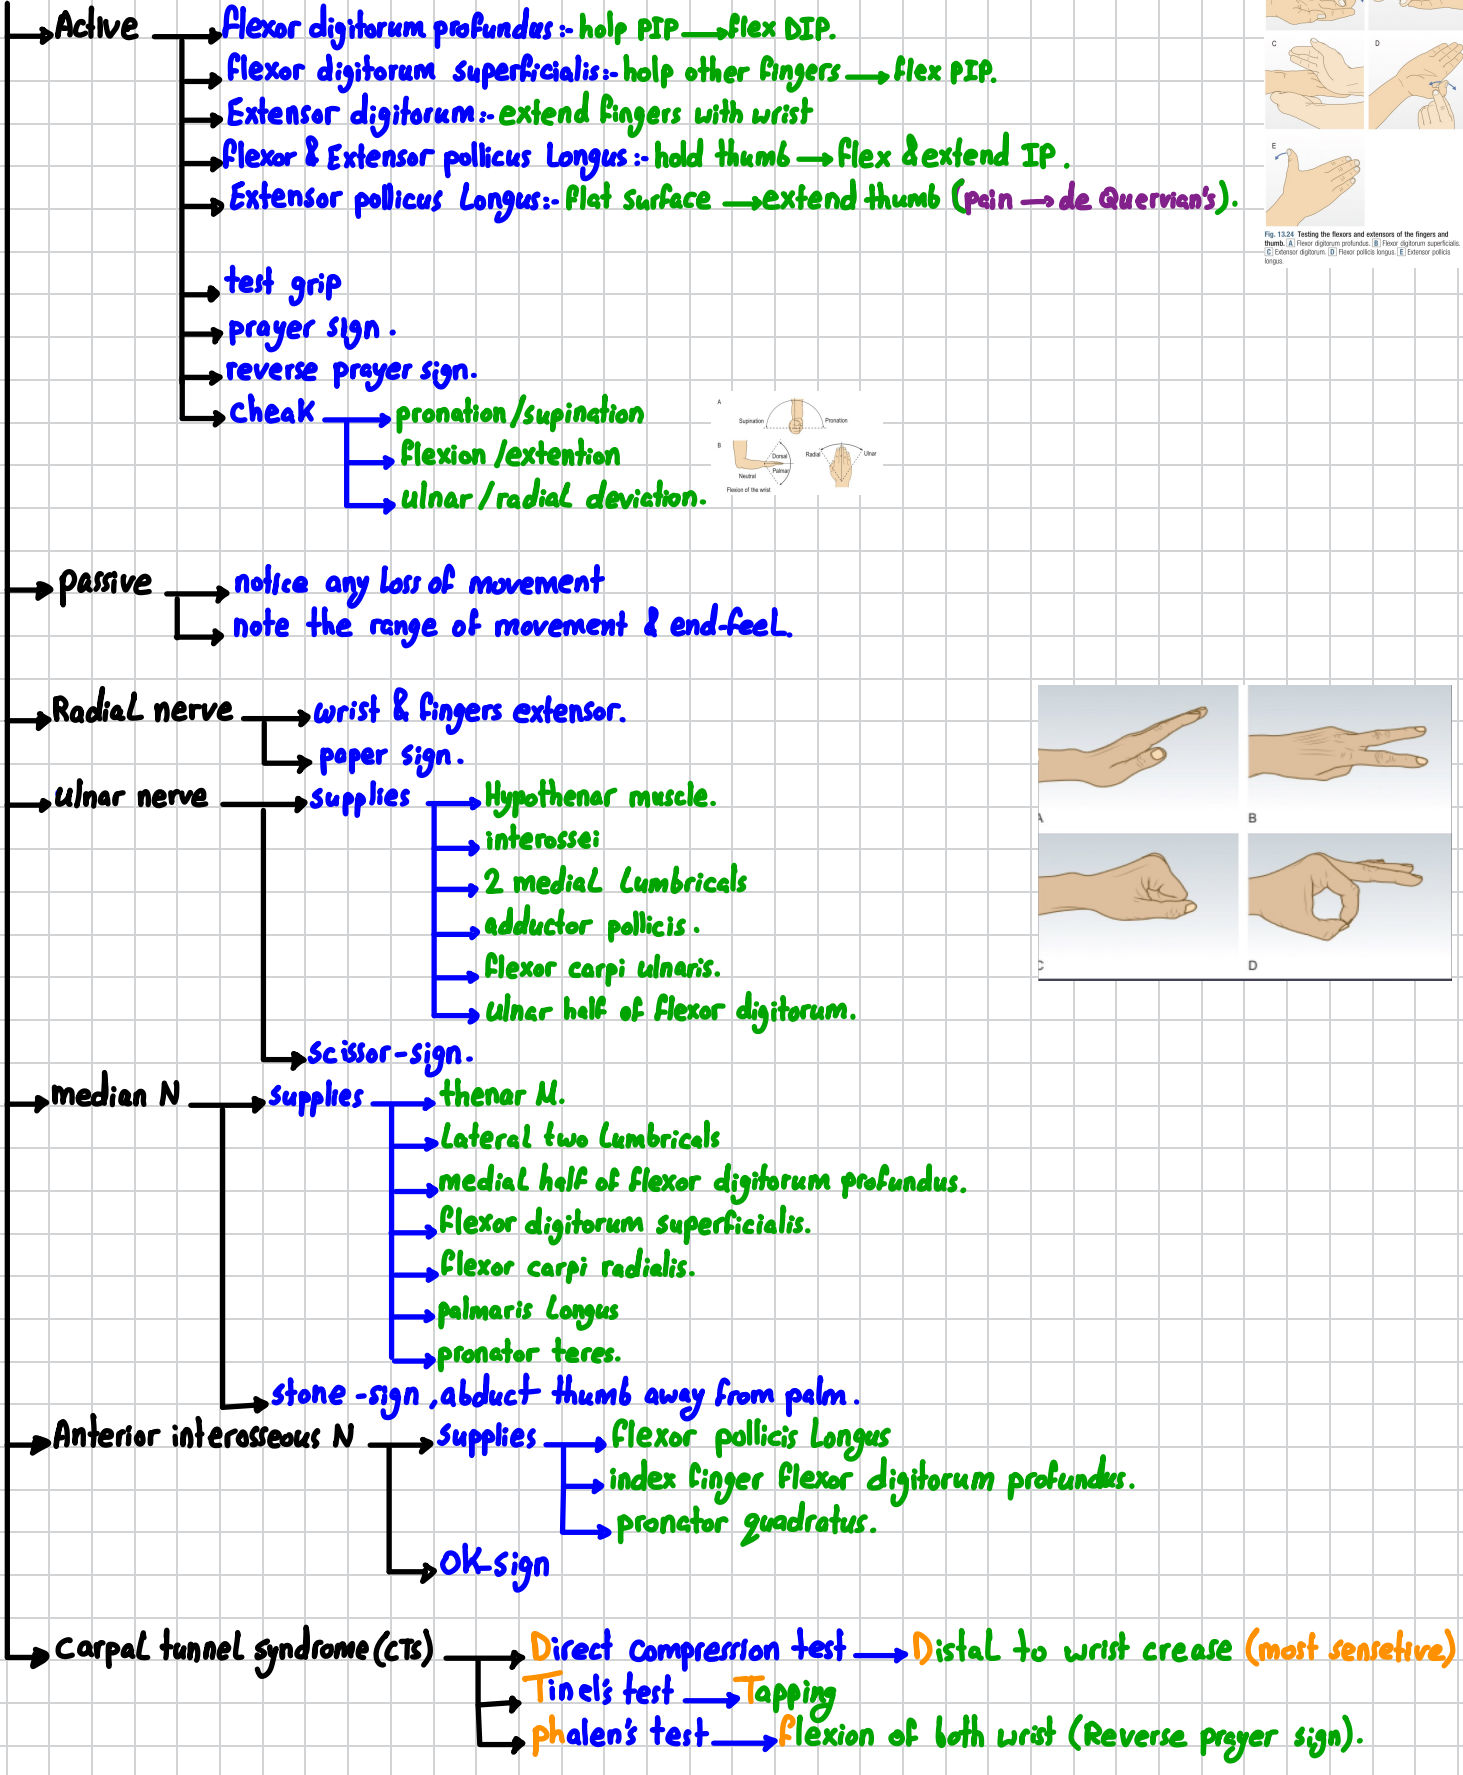 Active
flexor digitorum profundus:- holp PIP → flex DIP.
flexor digitorum superficialis:- holp other fingers → flex PIP.
Extensor digitorum:- extend fingers with wrist
flexor & Extensor pollicus Longus:- hold thumb → flex & extend IP.
Extensor pollicus Longus:- flat surface → extend thumb (pain → de Quervian's).
C D
E
Fig. 13.24 Testing the flexors and extensors of the fingers and
thumb. A Flexor digitorum profundus. B Flexor digitorum superficialis.
C Extensor digitorum. D Flexor pollicis longus. E Extensor pollicis
longus.
test grip
prayer sign.
reverse prayer sign.
cheak
pronation/supination
flexion/extention
ulnar/radial deviation.
A
Supination Pronation
B
Dorsal
Palmar
Neutral
Flexion of the wrist
Radial Ulnar
passive
notice any loss of movement
note the range of movement & end-feel.
Radial nerve
wrist & fingers extensor.
paper sign.
ulnar nerve
supplies
Hypothenar muscle.
interossei
2 medial Lumbricals
adductor pollicis.
flexor carpi ulnaris.
ulnar half of flexor digitorum.
scissor-sign.
A B
C D
median N
supplies
thenar M.
Lateral two Lumbricals
medial half of flexor digitorum profundus.
flexor digitorum superficialis.
flexor carpi radialis.
palmaris Longus
pronator teres.
stone-sign, abduct thumb away from palm.
Anterior interosseous N
supplies
flexor pollicis Longus
index finger flexor digitorum profundus.
pronator quadratus.
OK-sign
carpal tunnel syndrome (CTS)
Direct compression test → Distal to wrist crease (most sensetive)
Tinel's test → Tapping
phalen's test → flexion of both wrist (Reverse prayer sign).